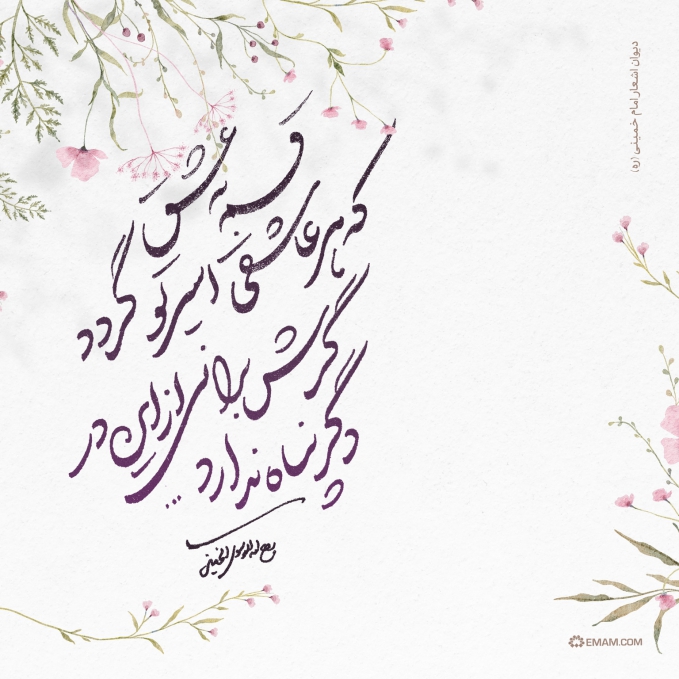 قسم به عشق
که هر عاشقی اسیر تو گردد
گرش برانی از این در
دگر پناه ندارد ...
روح الله الموسوی الخمینی
دیوان اشعار امام خمینی (ره)
EMAM.COM